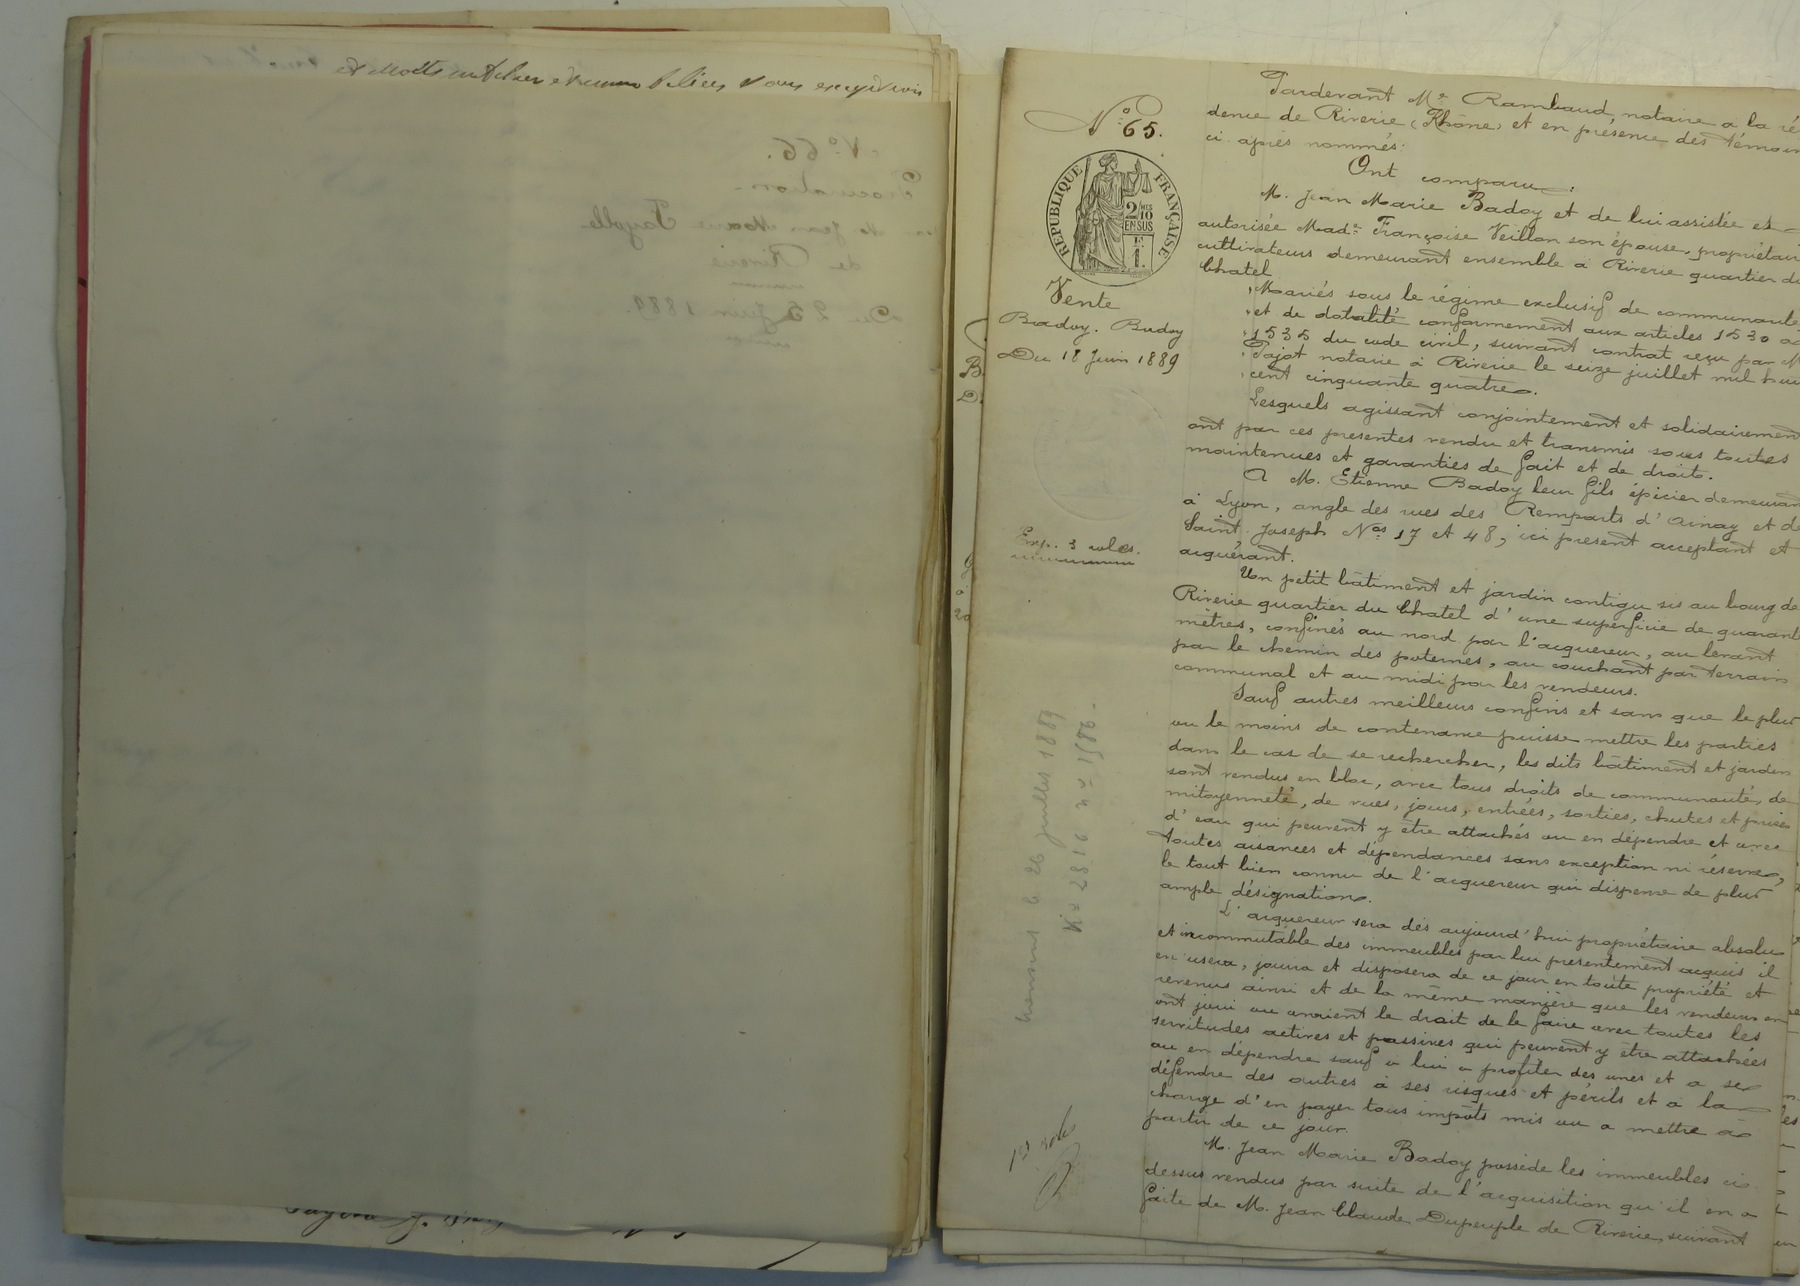 et droits mobiliers et immobiliers sans exception
No 66.
Procuration
M. Jean Marie Fayolle
de Riverie
Du 25 Juin 1889.
No 65.
RÉPUBLIQUE FRANÇAISE
2/10
EN SUS
1F.
Vente
Badoy. Badoy
Du 18 Juin 1889
Exp. 3 roles.
transcrit le 26 Juillet 1889
Pardevant Me Rambaud notaire a la ré
dence de Riverie (Rhône) et en présence des témoin
ci après nommés:
Ont comparu:
M. Jean Marie Badoy et de lui assistée et
autorisée Made Françoise Veillon son épouse, propriétair
cultivateurs demeurant ensemble à Riverie quartier du
Chatel
Mariés sous le régime exclusif de communauté
et de dotalité conformément aux articles 1530 a
1535 du code civil, suivant contrat reçu par M
Pajot notaire à Riverie le seize juillet mil hui
cent cinquante quatre.
Lesquels agissant conjointement et solidairement
ont par ces présentes vendu et transmis sous toutes
maintenues et garanties de fait et de droits.
A M. Etienne Badoy leur fils épicier demeurant
à Lyon, angle des rues des Remparts d'Ainay et de
Saint Joseph Nos 17 et 48, ici present acceptant et
acquérant.
Un petit bâtiment et jardin contigu sis au bourg de
Riverie quartier du Chatel d'une superficie de quarante
mètres, confinés au nord par l'acquereur, au levant
par le chemin des poternes, au couchant par terrain
communal et au midi par les vendeurs.
Sauf autres meilleurs confins et sans que le plus
ou le moins de contenance puisse mettre les parties
dans le cas de se rechercher, les dits bâtiment et jardin
sont vendus en bloc, avec tous droits de communauté, de
mitoyenneté, de vues, jours, entrées, sorties, chutes et prises
d'eau qui peuvent y être attachés ou en dépendre et avec
toutes aisances et dépendances sans exception ni réserve,
le tout bien connu de l'acquereur qui dispense de plus
ample désignation.
L'acquereur sera dès aujourd'hui propriétaire absolu
et incommutable des immeubles par lui presentement acquis il
en usera, jouira et disposera de ce jour en toute propriété et
revenus ainsi et de la même manière que les vendeurs en
ont joui ou avaient le droit de le faire avec toutes les
servitudes actives et passives qui peuvent y être attachées
ou en dépendre sauf a lui a profiter des unes et a se
défendre des autres à ses risques et périls et a la
charge d'en payer tous impôts mis ou a mettre à
partir de ce jour.
M. Jean Marie Badoy possède les immeubles ci
dessus vendus par suite de l'acquisition qu'il en a
faite de M. Jean Claude Dupeuple de Riverie, suivant